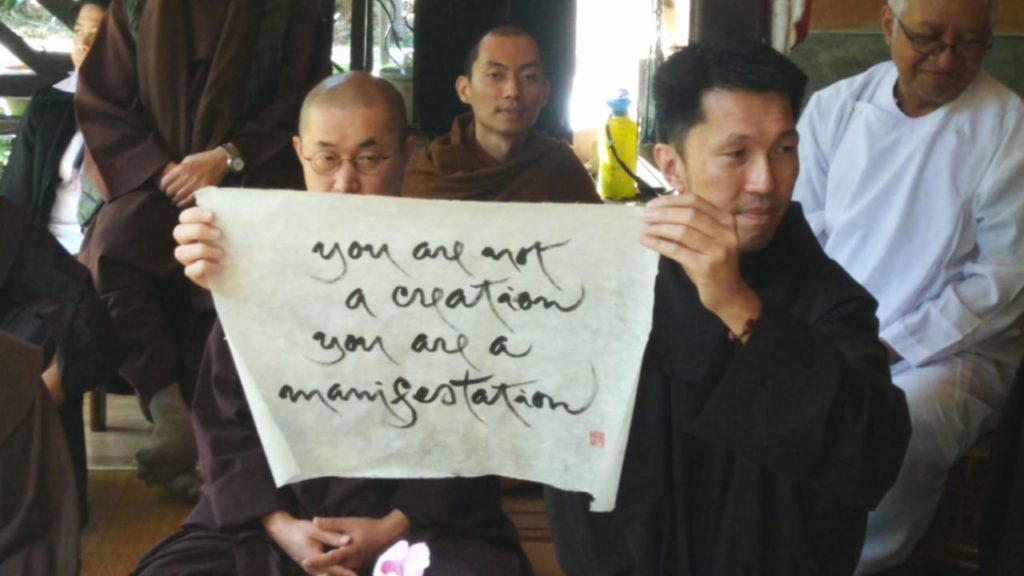 you are not
a creation
you are a
manifestation